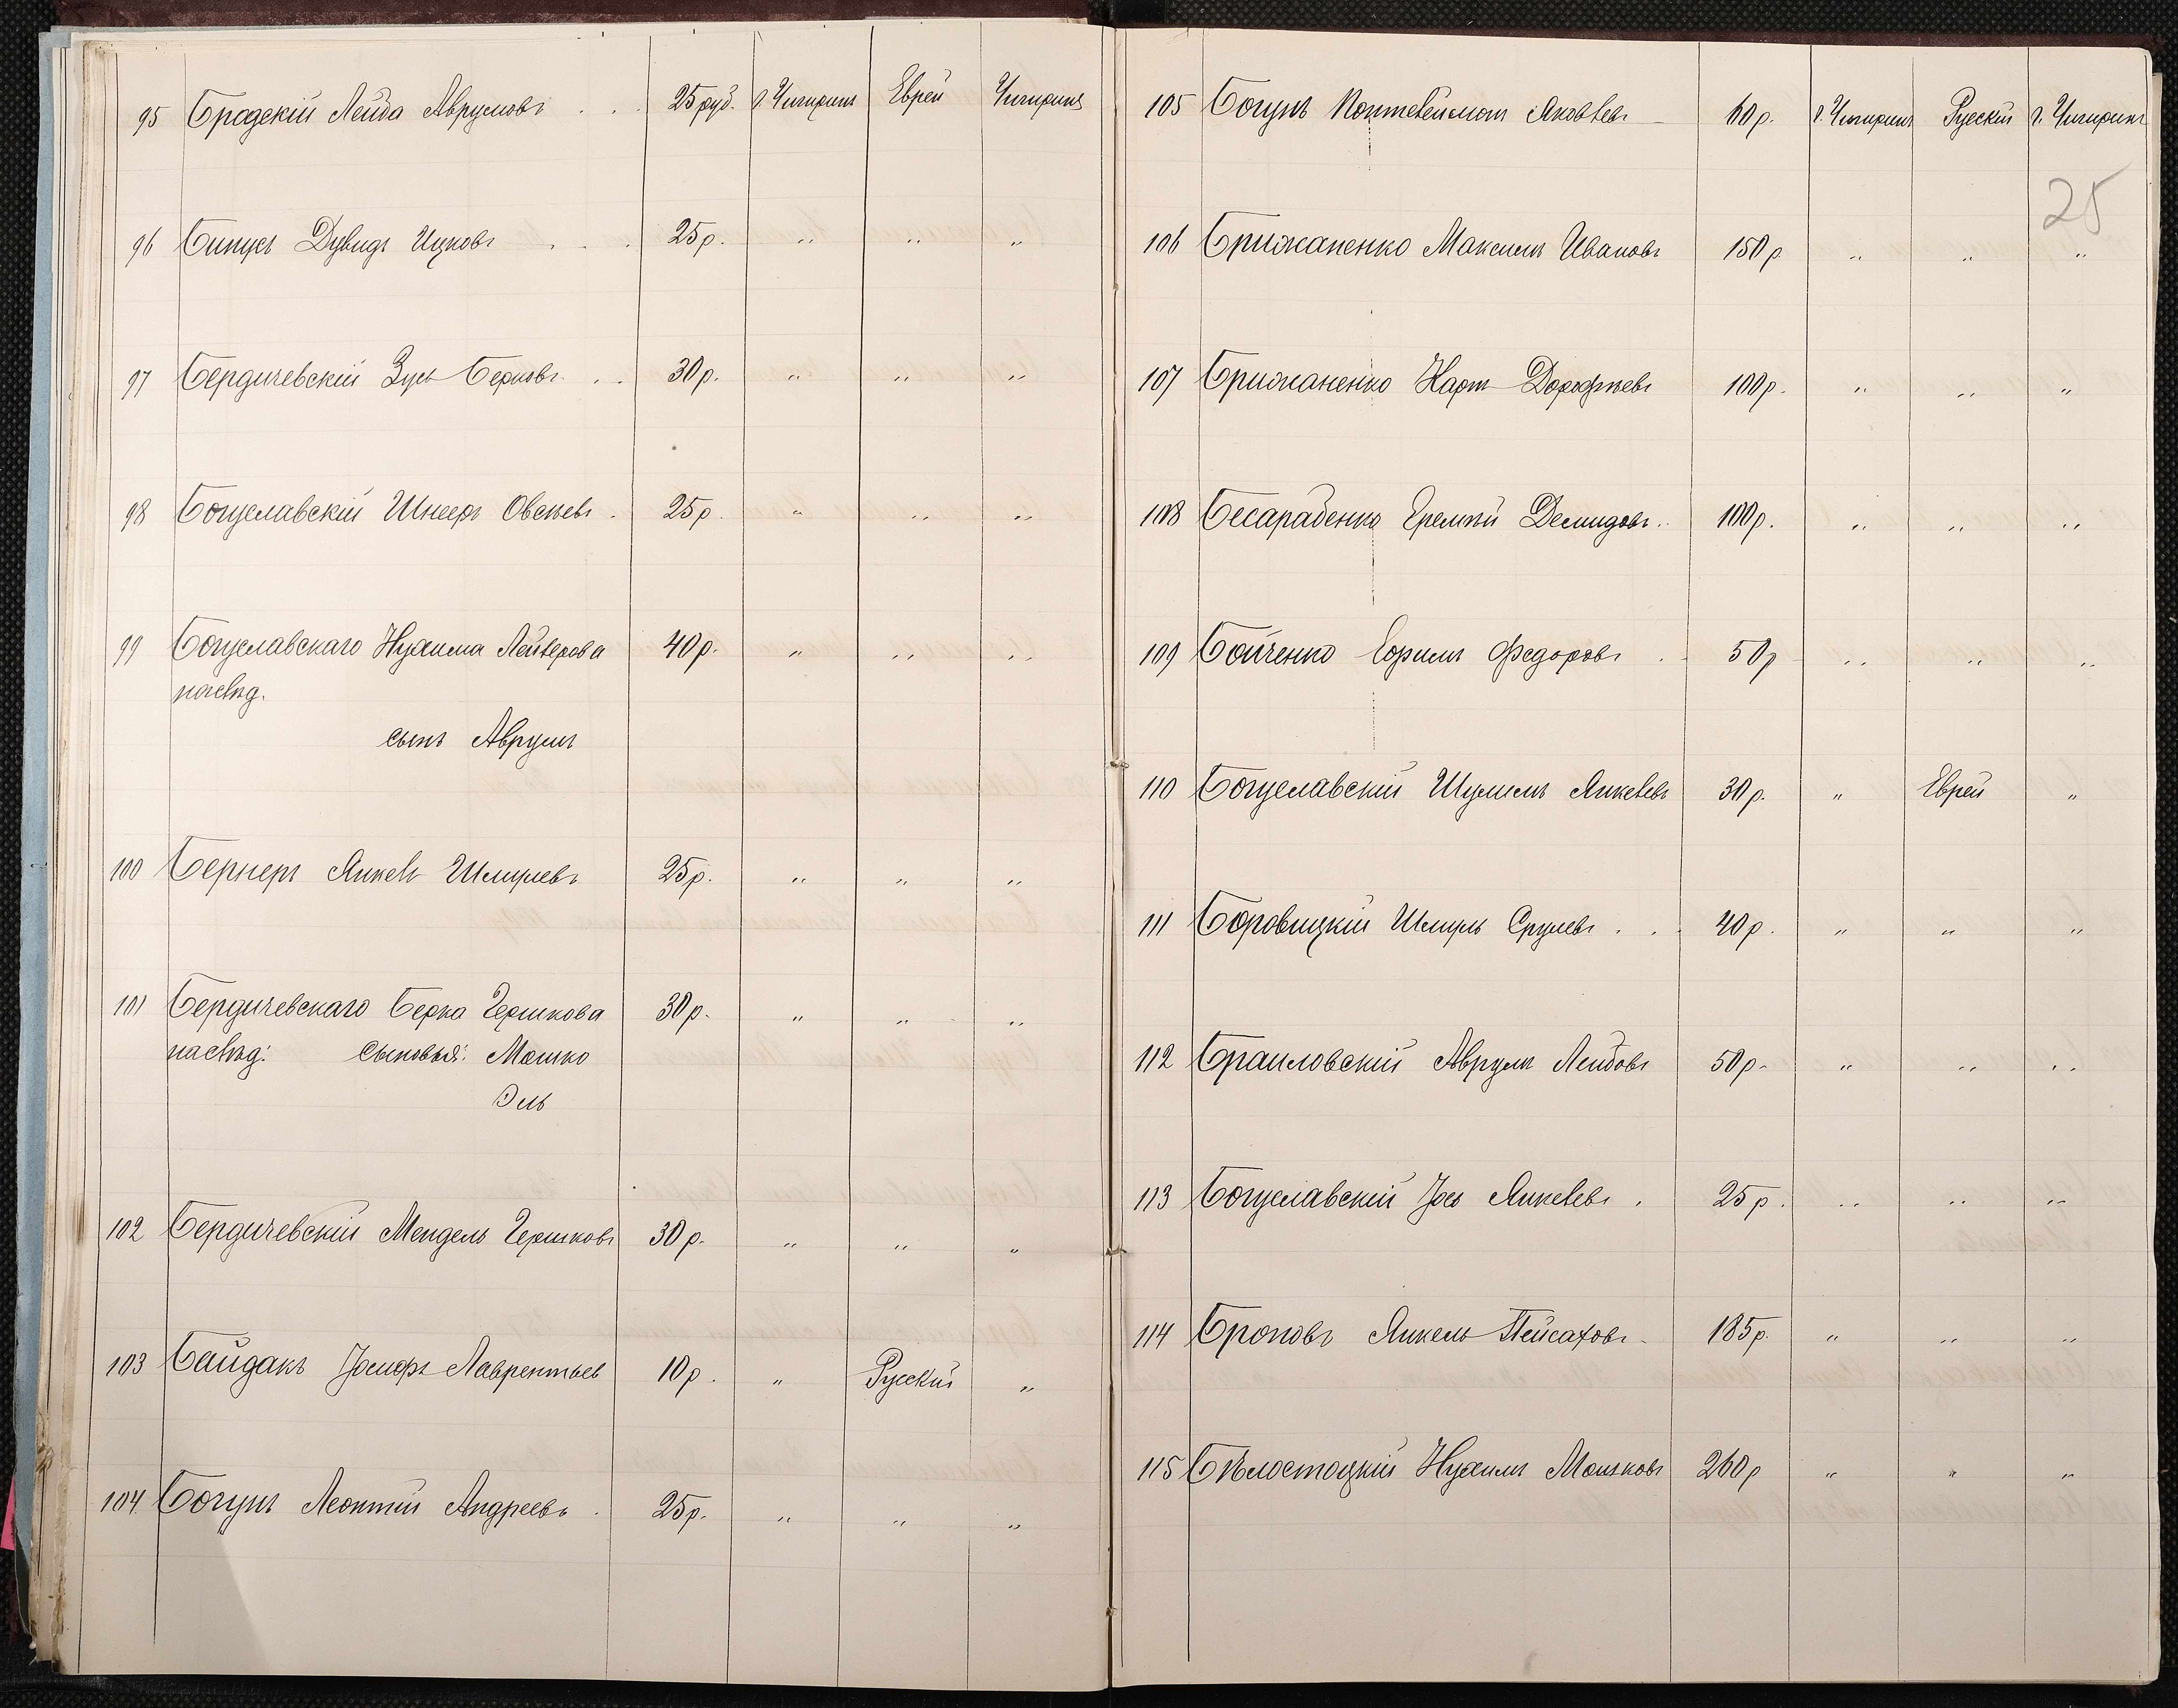 95 Бродскій Лейба Аврумовъ . . . 25 руб. г. Чигиринъ Еврей Чигиринъ
96 Бипусъ Дувидъ Ицковъ . . . 25 р. " " "
97 Бердичевскій Зусь Берковъ . . 30 р. " " "
98 Богуславскій Шнееръ Овсѣевъ . 25 р. " " "
99 Богуславскаго Нухима Лейзерова 40 р. " " "
наслѣд.
сынъ Аврумъ
100 Бернеръ Янкель Шмулевъ 25 р. " " "
101 Бердичевскаго Берка Гершкова 30 р. " " "
наслѣд: сыновья: Мошко
Эль
102 Бердичевскій Мендель Гершковъ 30 р. " " "
103 Байдакъ Іосифъ Лаврентьев 10 р. " Русскій "
104 Богунъ Леонтій Андреевъ . 25 р. " " "
105 Богунъ Яковлевъ 60 р. г. Чигиринъ Русскій г. Чигиринъ
25
106 Брижаненко Максимъ Ивановъ 150 р. " " "
107 Брижаненко Карп Дорофѣевъ 100 р. " " "
108 Бесарабенко Еремѣй Демидовъ . . 100 р. " " "
109 Бойченко Ефимъ Федоровъ . . 50 р " " "
110 Богуславскій Шулимъ Янкелевъ 30 р. " Еврей "
111 Боровицкій Шмуль Срулевъ . . . 40 р. " " "
112 Браиловскій Аврумъ Лейбовъ 50 р. " " "
113 Богуславскій Іось Янкелевъ . 25 р. " " "
114 Броновъ Янкель Пейсаховъ 185 р. " " "
115 Бѣлостоцкій Нухимъ Мошковъ 260 р " " "